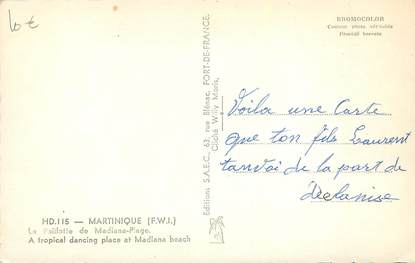 6 €
BROMOCOLOR
Couleur photo véritable
Procédé breveté
Editions S.A.E.C., 63, rue Blénac, FORT-DE-FRANCE.
Cliché Willy Monis.
Voila une Carte
que ton fils Laurent
tanvoi de la part de
Declanise
HD.115 — MARTINIQUE (F.W.I.)
La Paillotte de Madiana-Plage.
A tropical dancing place at Madiana beach